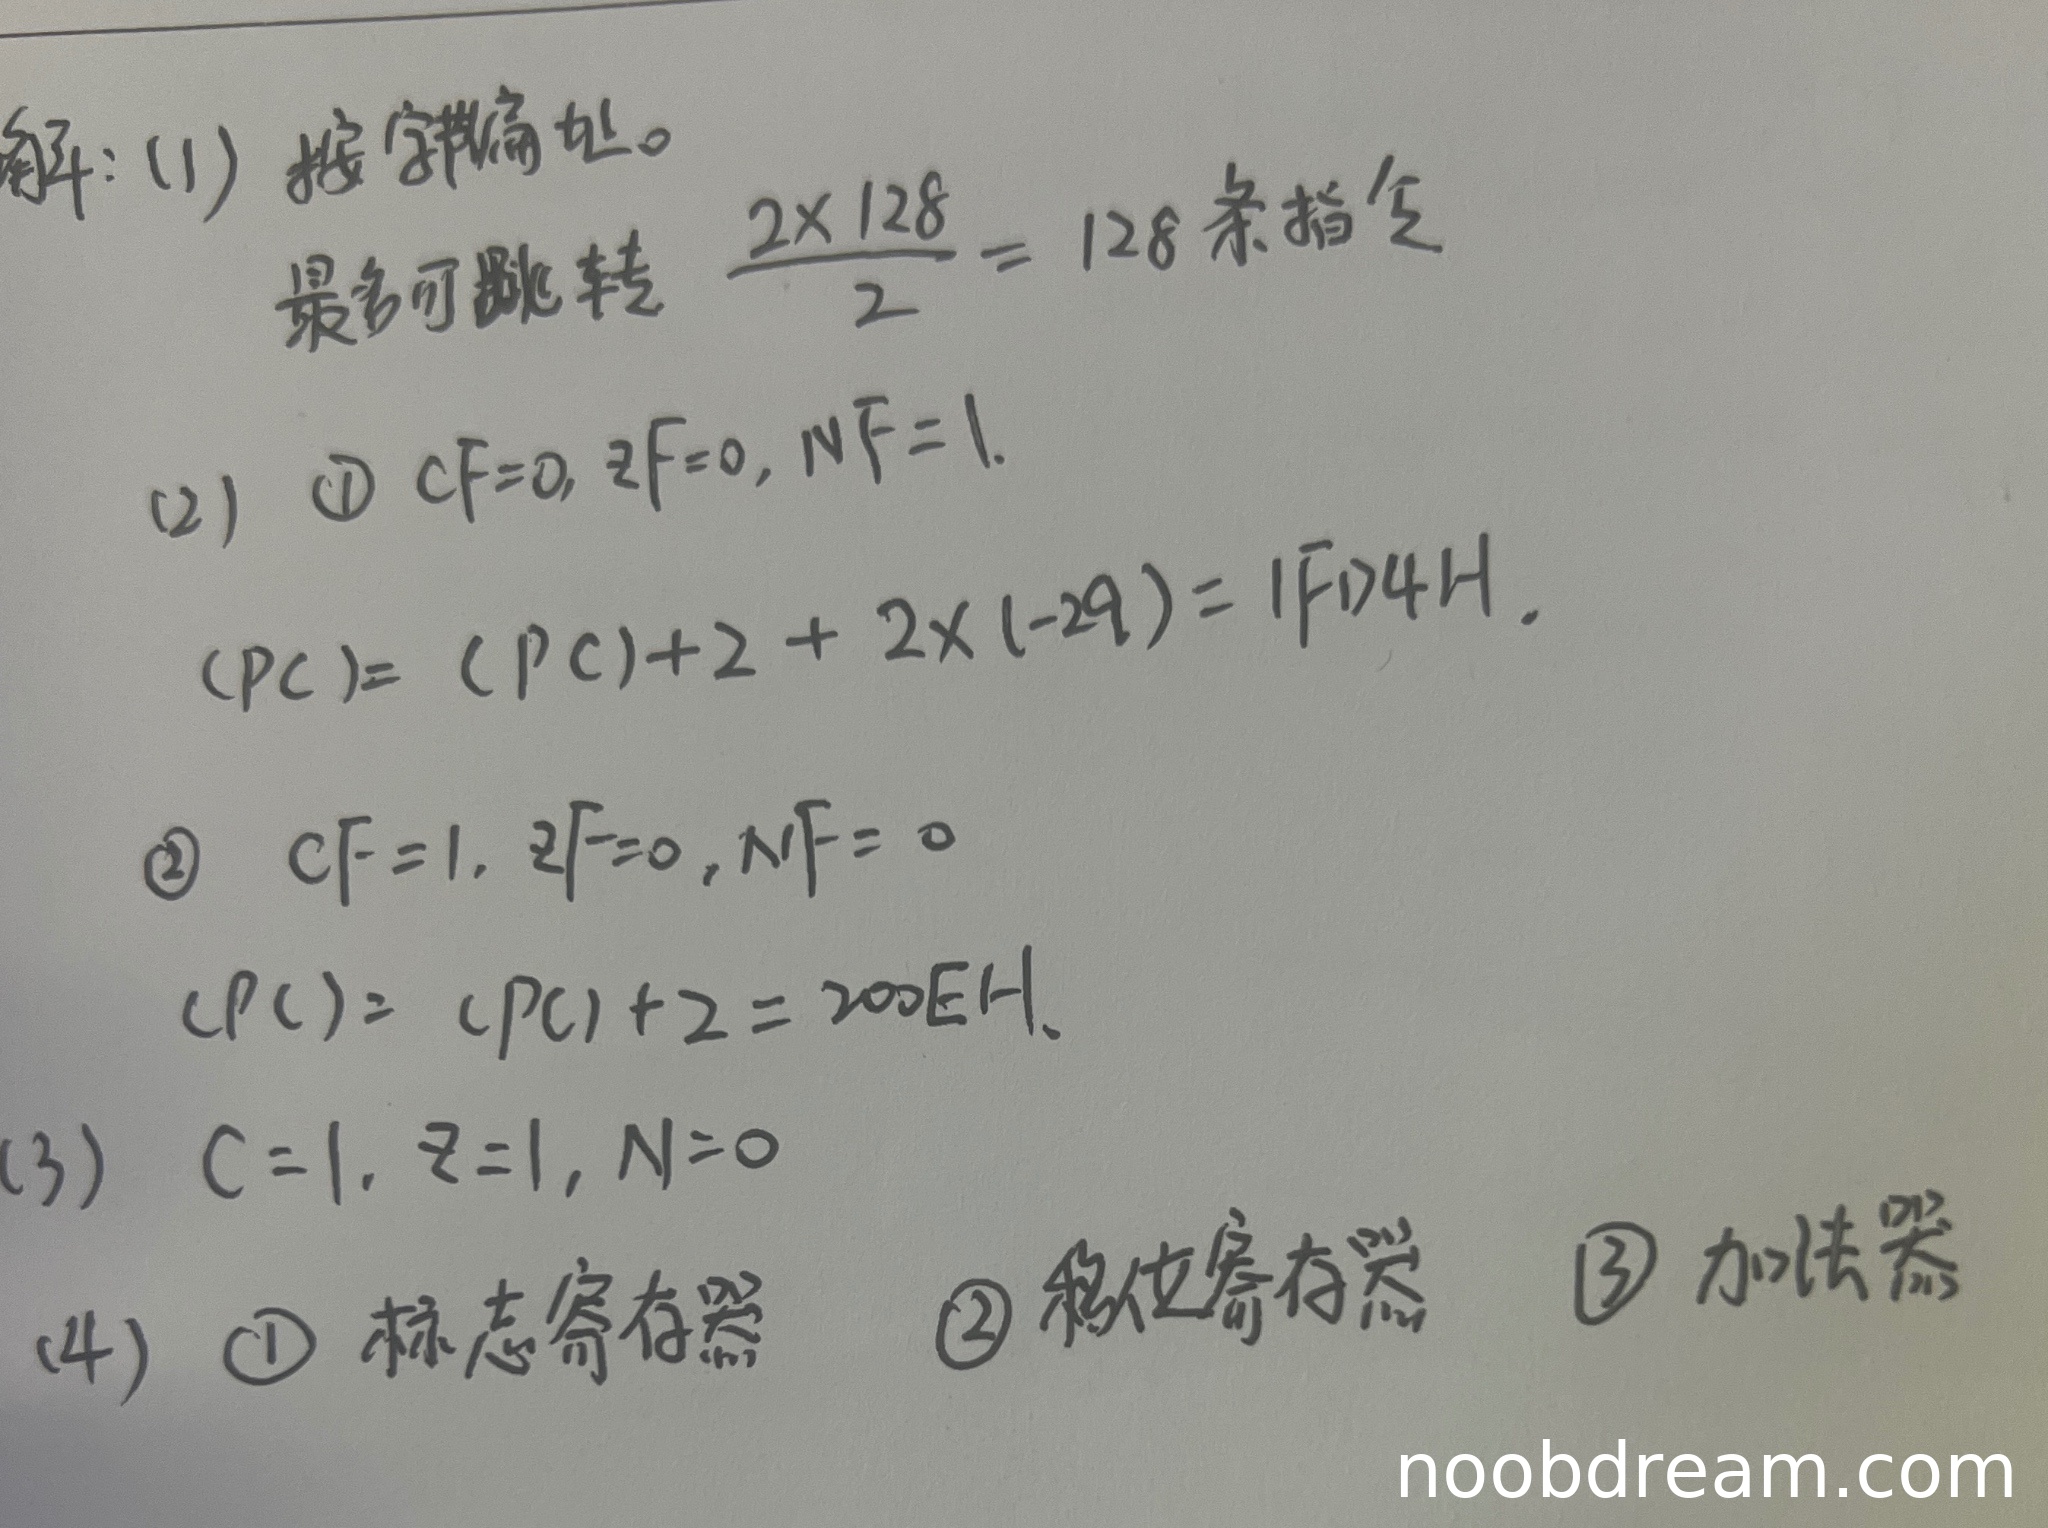 解:(1) 按字节编址。
最多可跳转 2×128/2 = 128条指令
(2) ① CF=0, ZF=0, NF=1.
(PC)= (PC)+2 + 2×(-29) = 1FD4H.
② CF=1. ZF=0, NF=0
(PC)= (PC)+2 = 200EH.
(3) C=1. Z=1, N=0
(4) ① 标志寄存器 ② 移位寄存器 ③ 加法器
noobdream.com